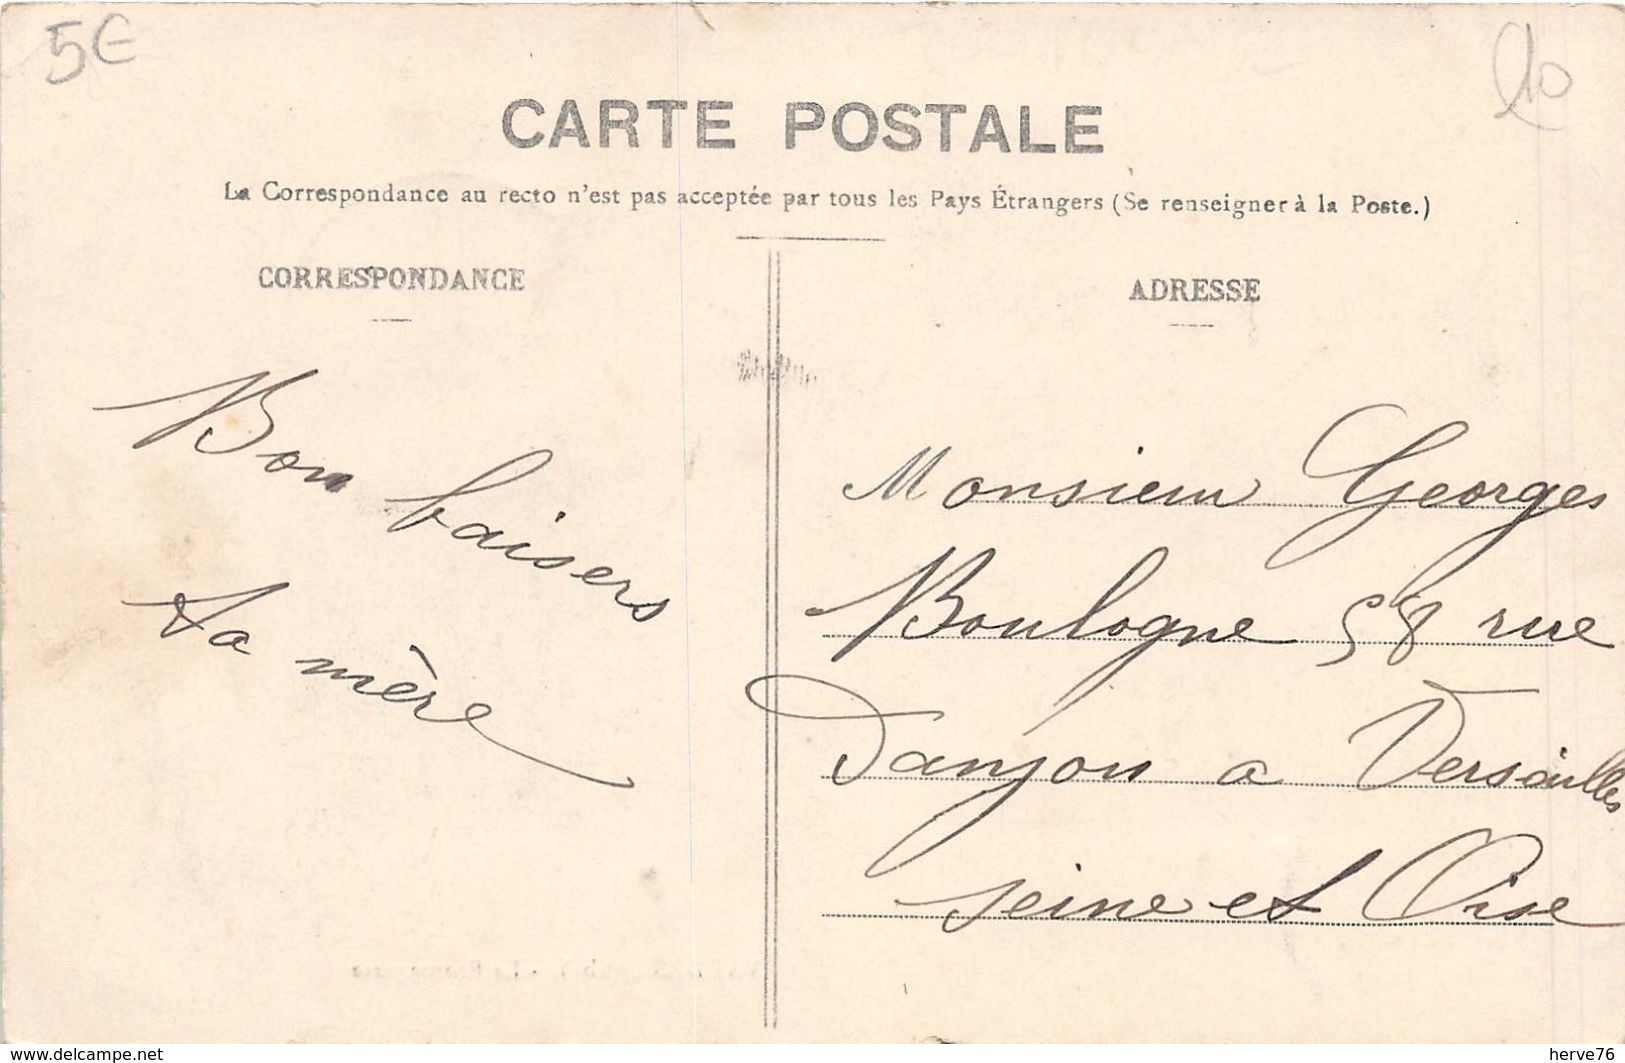 5€
10
CARTE POSTALE
La Correspondance au recto n'est pas acceptée par tous les Pays Étrangers (Se renseigner à la Poste.)
CORRESPONDANCE
ADRESSE
Bon baisers
ta mère
Monsieur Georges
Boulogne 58 rue
Danjou a Versailles
Seine et Oise
www.delcampe.net
herve76